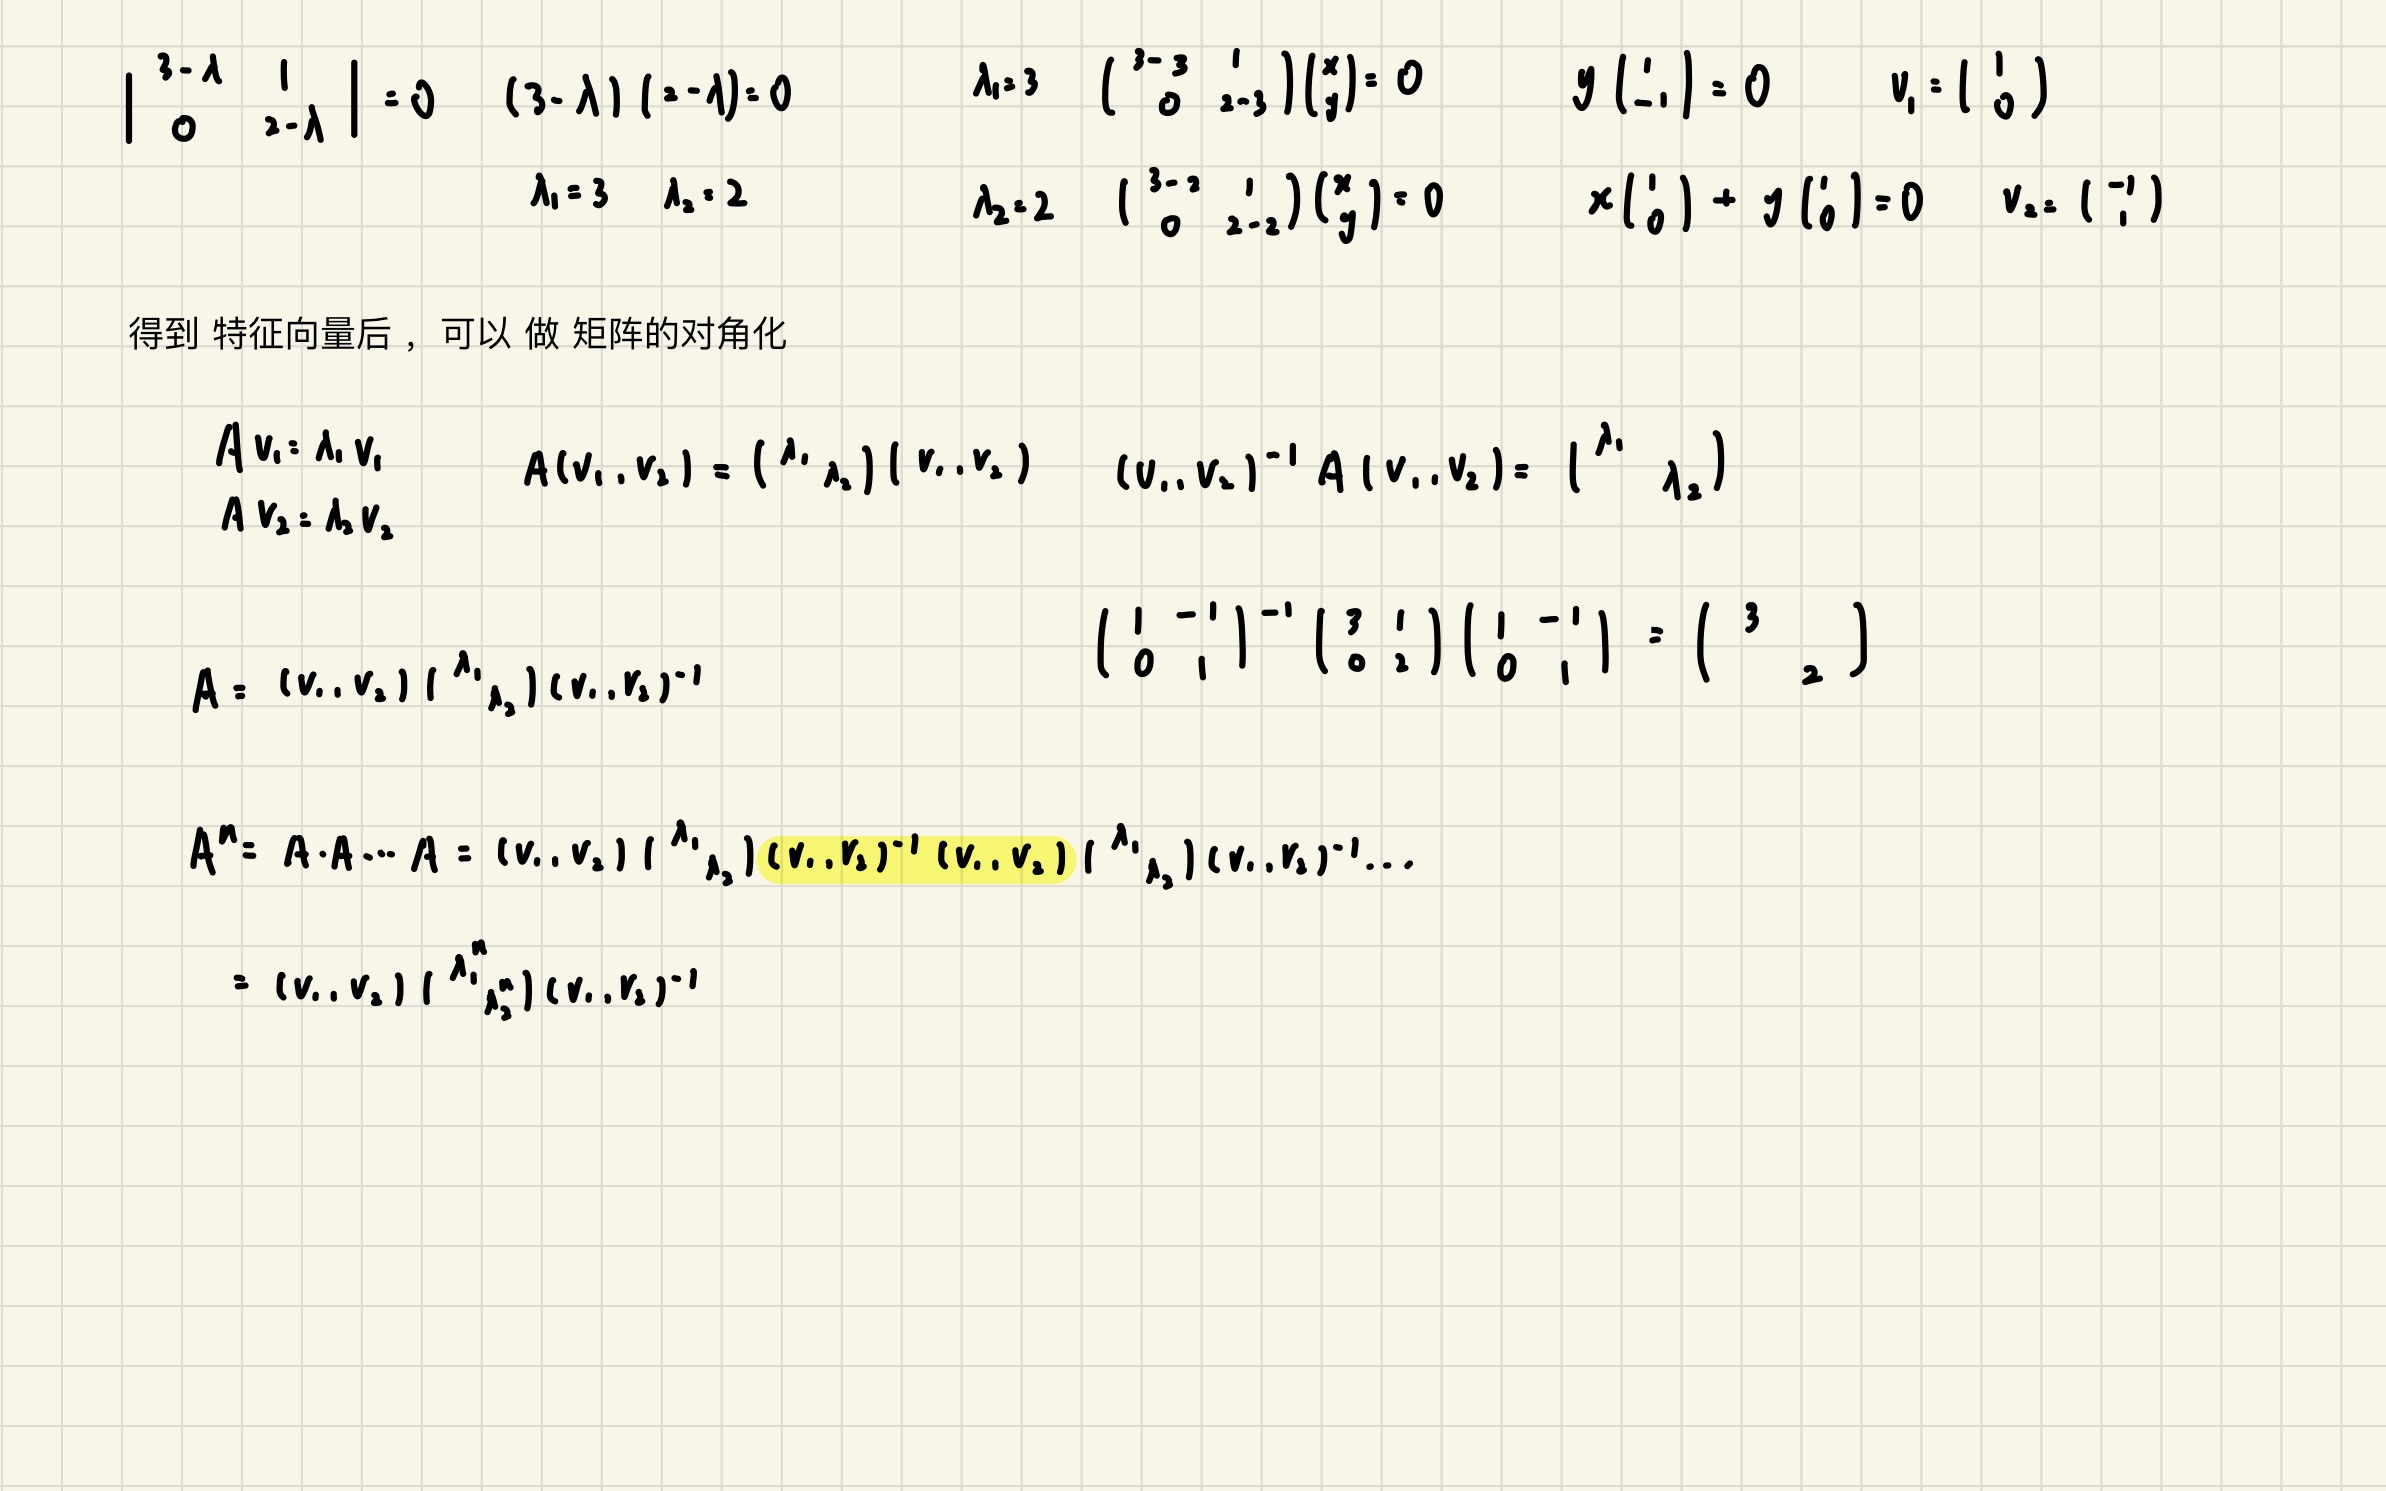 | 3-λ 1 ; 0 2-λ | = 0 (3-λ)(2-λ)=0 λ₁=3 ( 3-3 1 ; 0 2-3 )( x ; y ) = 0 y( 1 ; -1 ) = 0 v₁ = ( 1 ; 0 )
λ₁=3 λ₂=2 λ₂=2 ( 3-2 1 ; 0 2-2 )( x ; y ) = 0 x( 1 ; 0 ) + y( 1 ; 0 ) = 0 v₂ = ( -1 ; 1 )
得到 特征向量后 ， 可以 做 矩阵的对角化
A v₁ = λ₁ v₁
A v₂ = λ₂ v₂
A(v₁, v₂) = ( λ₁ ; λ₂ )(v₁, v₂) (v₁, v₂)⁻¹ A (v₁, v₂) = ( λ₁ ; λ₂ )
( 1 -1 ; 0 1 )⁻¹ ( 3 1 ; 0 2 )( 1 -1 ; 0 1 ) = ( 3 ; 2 )
A = (v₁, v₂)( λ₁ ; λ₂ )(v₁, v₂)⁻¹
Aⁿ = A·A··· A = (v₁, v₂)( λ₁ ; λ₂ )(v₁, v₂)⁻¹ (v₁, v₂)( λ₁ ; λ₂ )(v₁, v₂)⁻¹ ...
= (v₁, v₂)( λ₁ⁿ ; λ₂ⁿ )(v₁, v₂)⁻¹